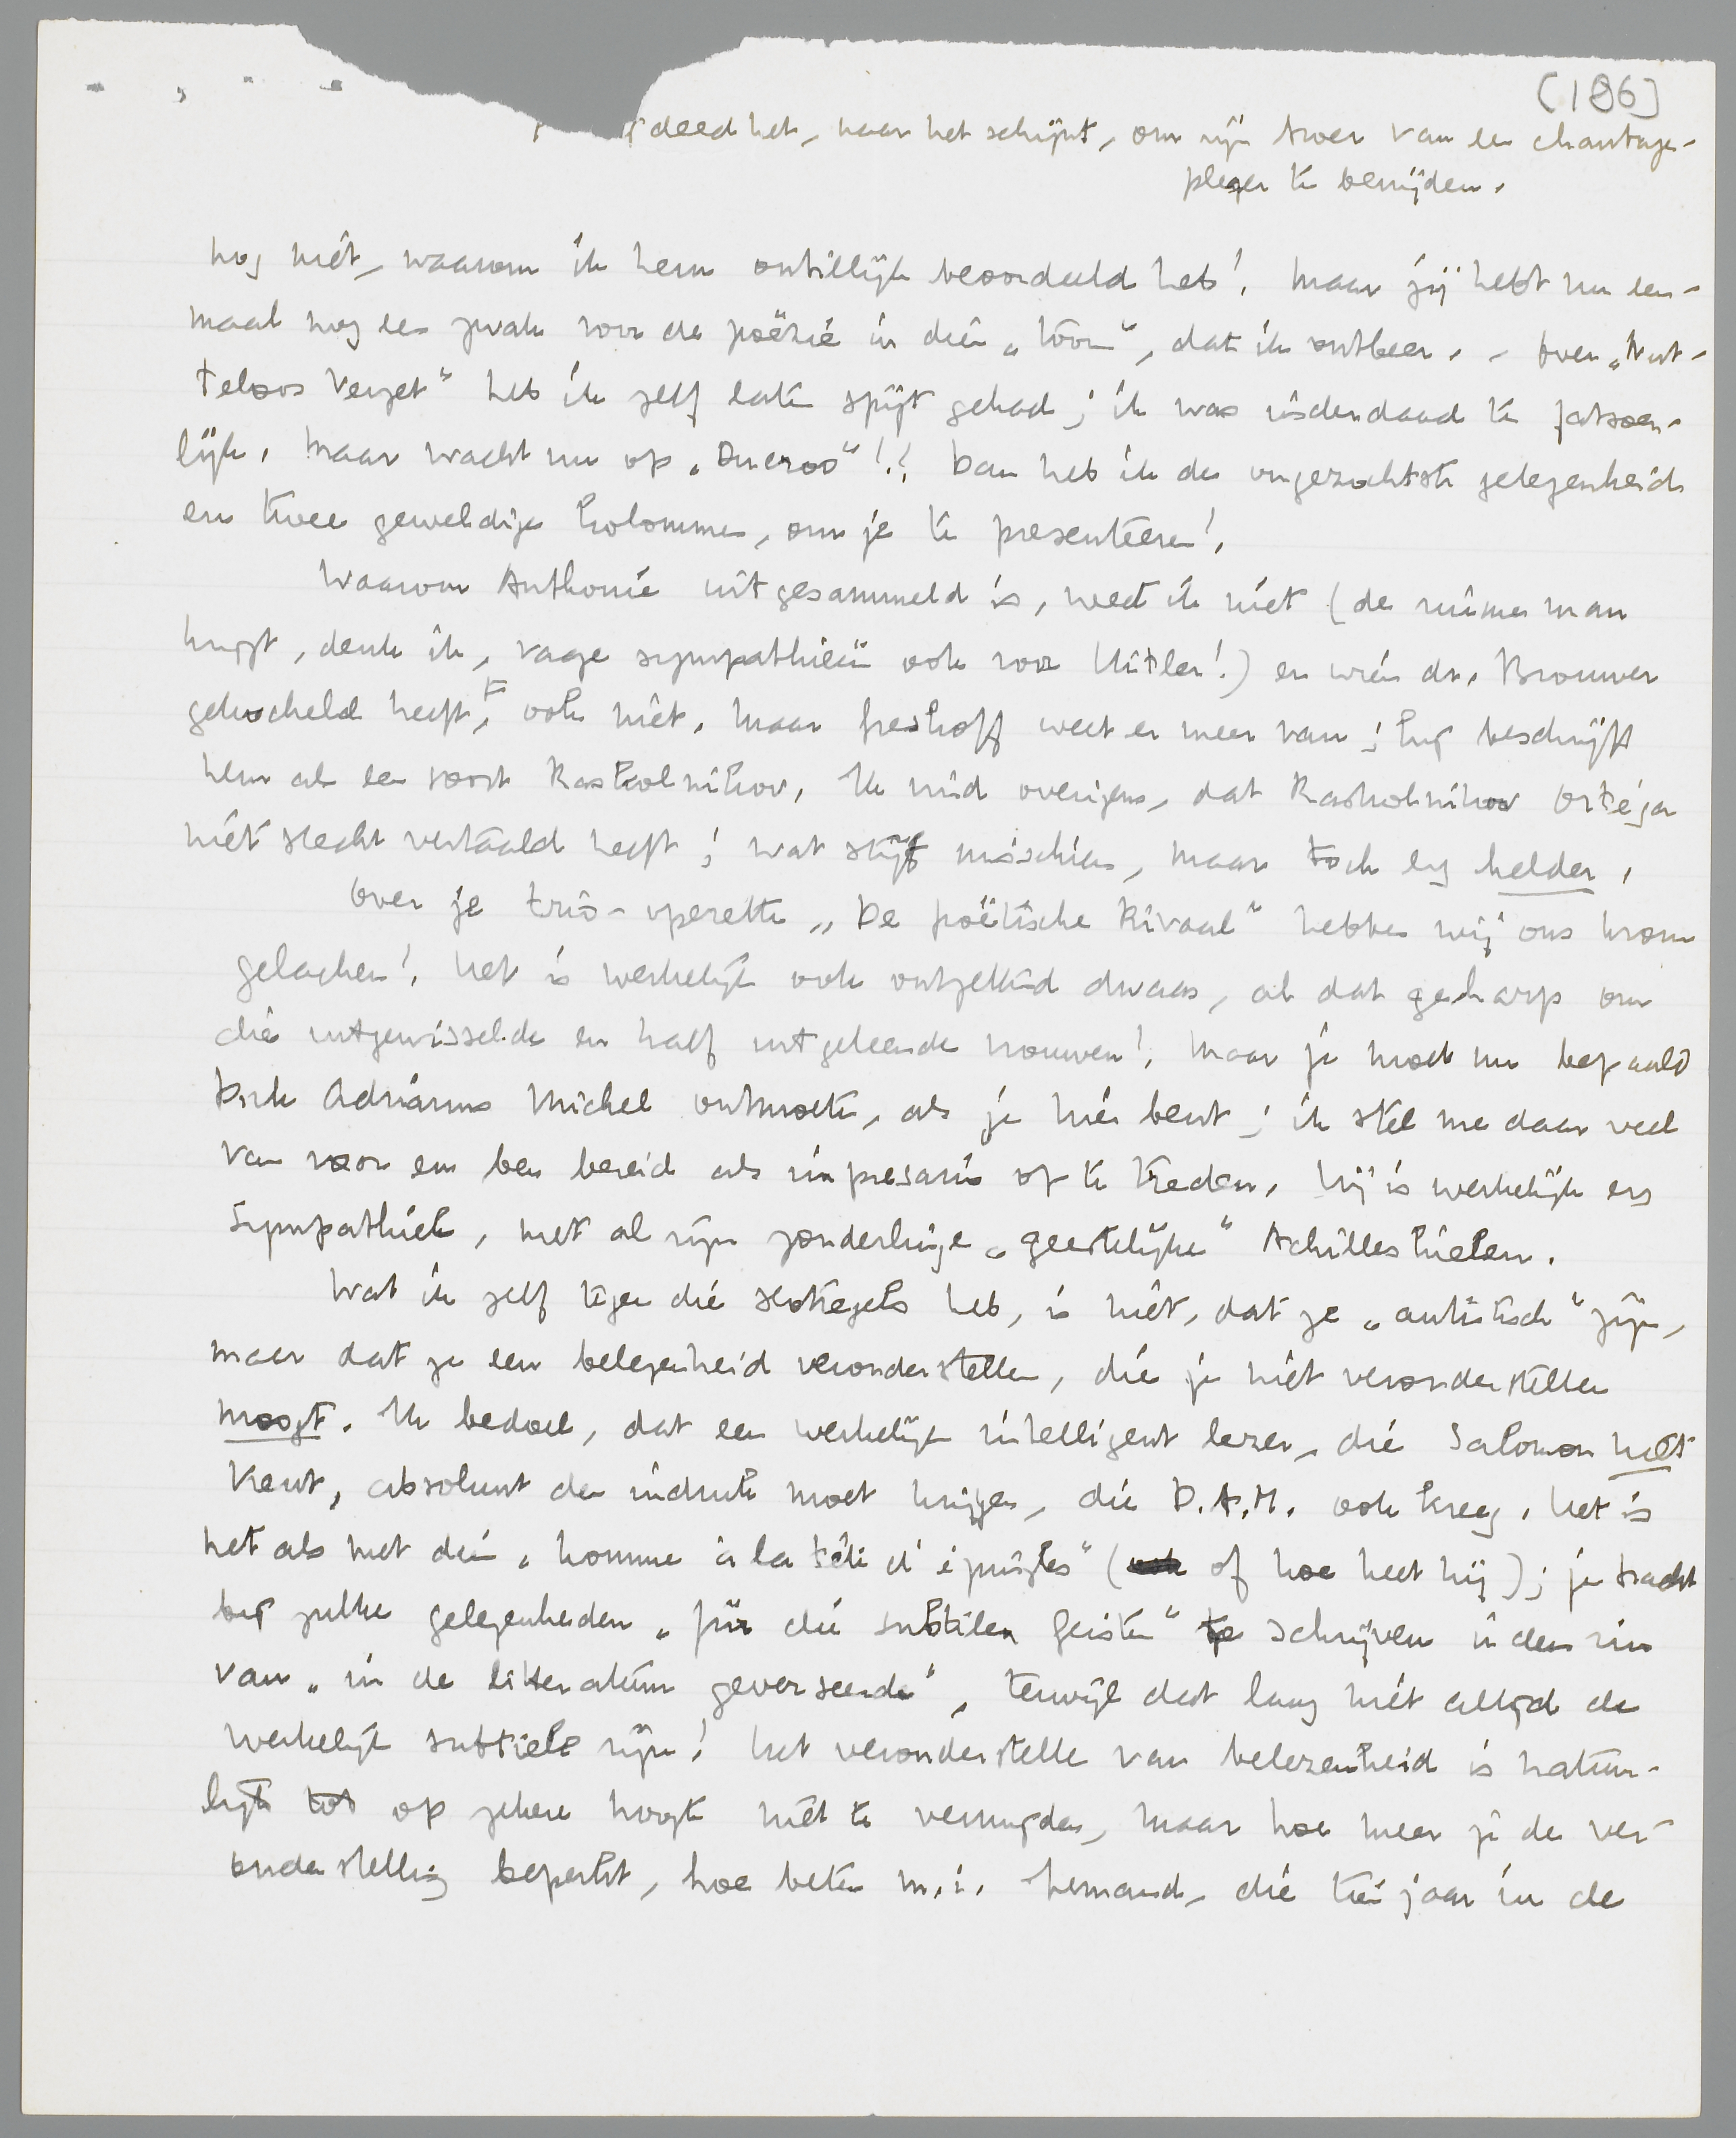 [186]
deed het, naar het schijnt, om zijn broer van een chantage-
pleger te bevrijden.
nog niet, waarom ik hem onbillijk beoordeeld heb! Maar jij hebt nu een-
maal nog een zwak voor de poëzie in dien „toon”, dat ik ontbeer. – Over „Nut-
teloos Verzet” heb ik zelf later spijt gehad; ik was inderdaad te fatsoen-
lijk. Maar wacht nu op „Ducroo”!! Dan heb ik de ongezochtste gelegenheid
en twee geweldige kolommen, om je te presenteeren!
Waarom Anthonie uitgesammeld is, weet ik niet (de ruime man
krijgt, denk ik, vage sympathieën ook voor Hitler!) en wien dr. Brouwer
gekocheld heeft, ook niet. Maar Greshoff weet er meer van; hij beschrijft
hem als een soort Raskolnikov. Ik vind overigens, dat Raskolnikov Ortega
niet slecht vertaald heeft; wat stijf misschien, maar toch erg helder.
Over je trio-operette „De poëtische Rivaal” hebben wij ons krom
gelachen! Het is werkelijk ook ontzettend dwaas, al dat geharp om
die uitgewisselde en half uitgeleende vrouwen! Maar je moet nu bepaald
Dirk Adrianus Michel ontmoeten, als je hier bent; ik stel me daar veel
van voor en ben bereid als impresario op te treden. Hij is werkelijk erg
sympathiek, met al zijn zonderlinge „geestelijke” Achilleshielen.
Wat ik zelf tegen die slotregels heb, is niet, dat ze „artistisch” zijn,
maar dat ze een belezenheid veronderstellen, die je niet veronderstellen
moogt. Ik bedoel, dat een werkelijk intelligent lezer, die Salomon niet
kent, absoluut den indruk moet krijgen, die D.A.M. ook kreeg. Het is
het als met dien „homme à la tête d'épingles” ( of hoe heet hij); je tracht
bij zulke gelegenheden „für die subtilen Geister” te schrijven in den zin
van „in de litteratuur geverseerde”, terwijl dat lang niet altijd de
werkelijk subtiele zijn! Het veronderstellen van belezenheid is natuur-
lijk tot op zekere hoogte niet te vermijden, maar hoe meer je de ver-
onderstelling beperkt, hoe beter m.i. Iemand, die tien jaar in de